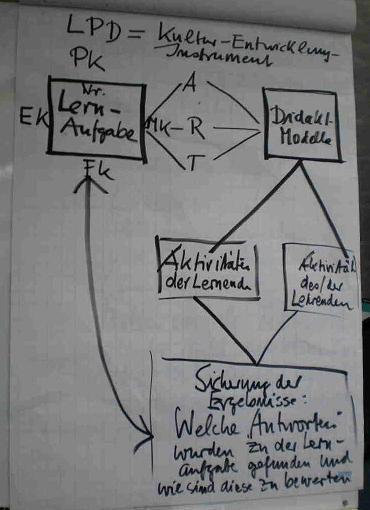 LPD = Kultur-Entwicklung-
Instrument
PK
Nr.
Lern-
Aufgabe
EK
MK
EK
A
R
T
Didakt.
Modelle
Aktivitäten
der Lernenden
Aktivität
des/der
Lehrenden
Sicherung der
Ergebnisse:
Welche "Antworten"
wurden zu der Lern-
aufgabe gefunden und
wie sind diese zu bewerten